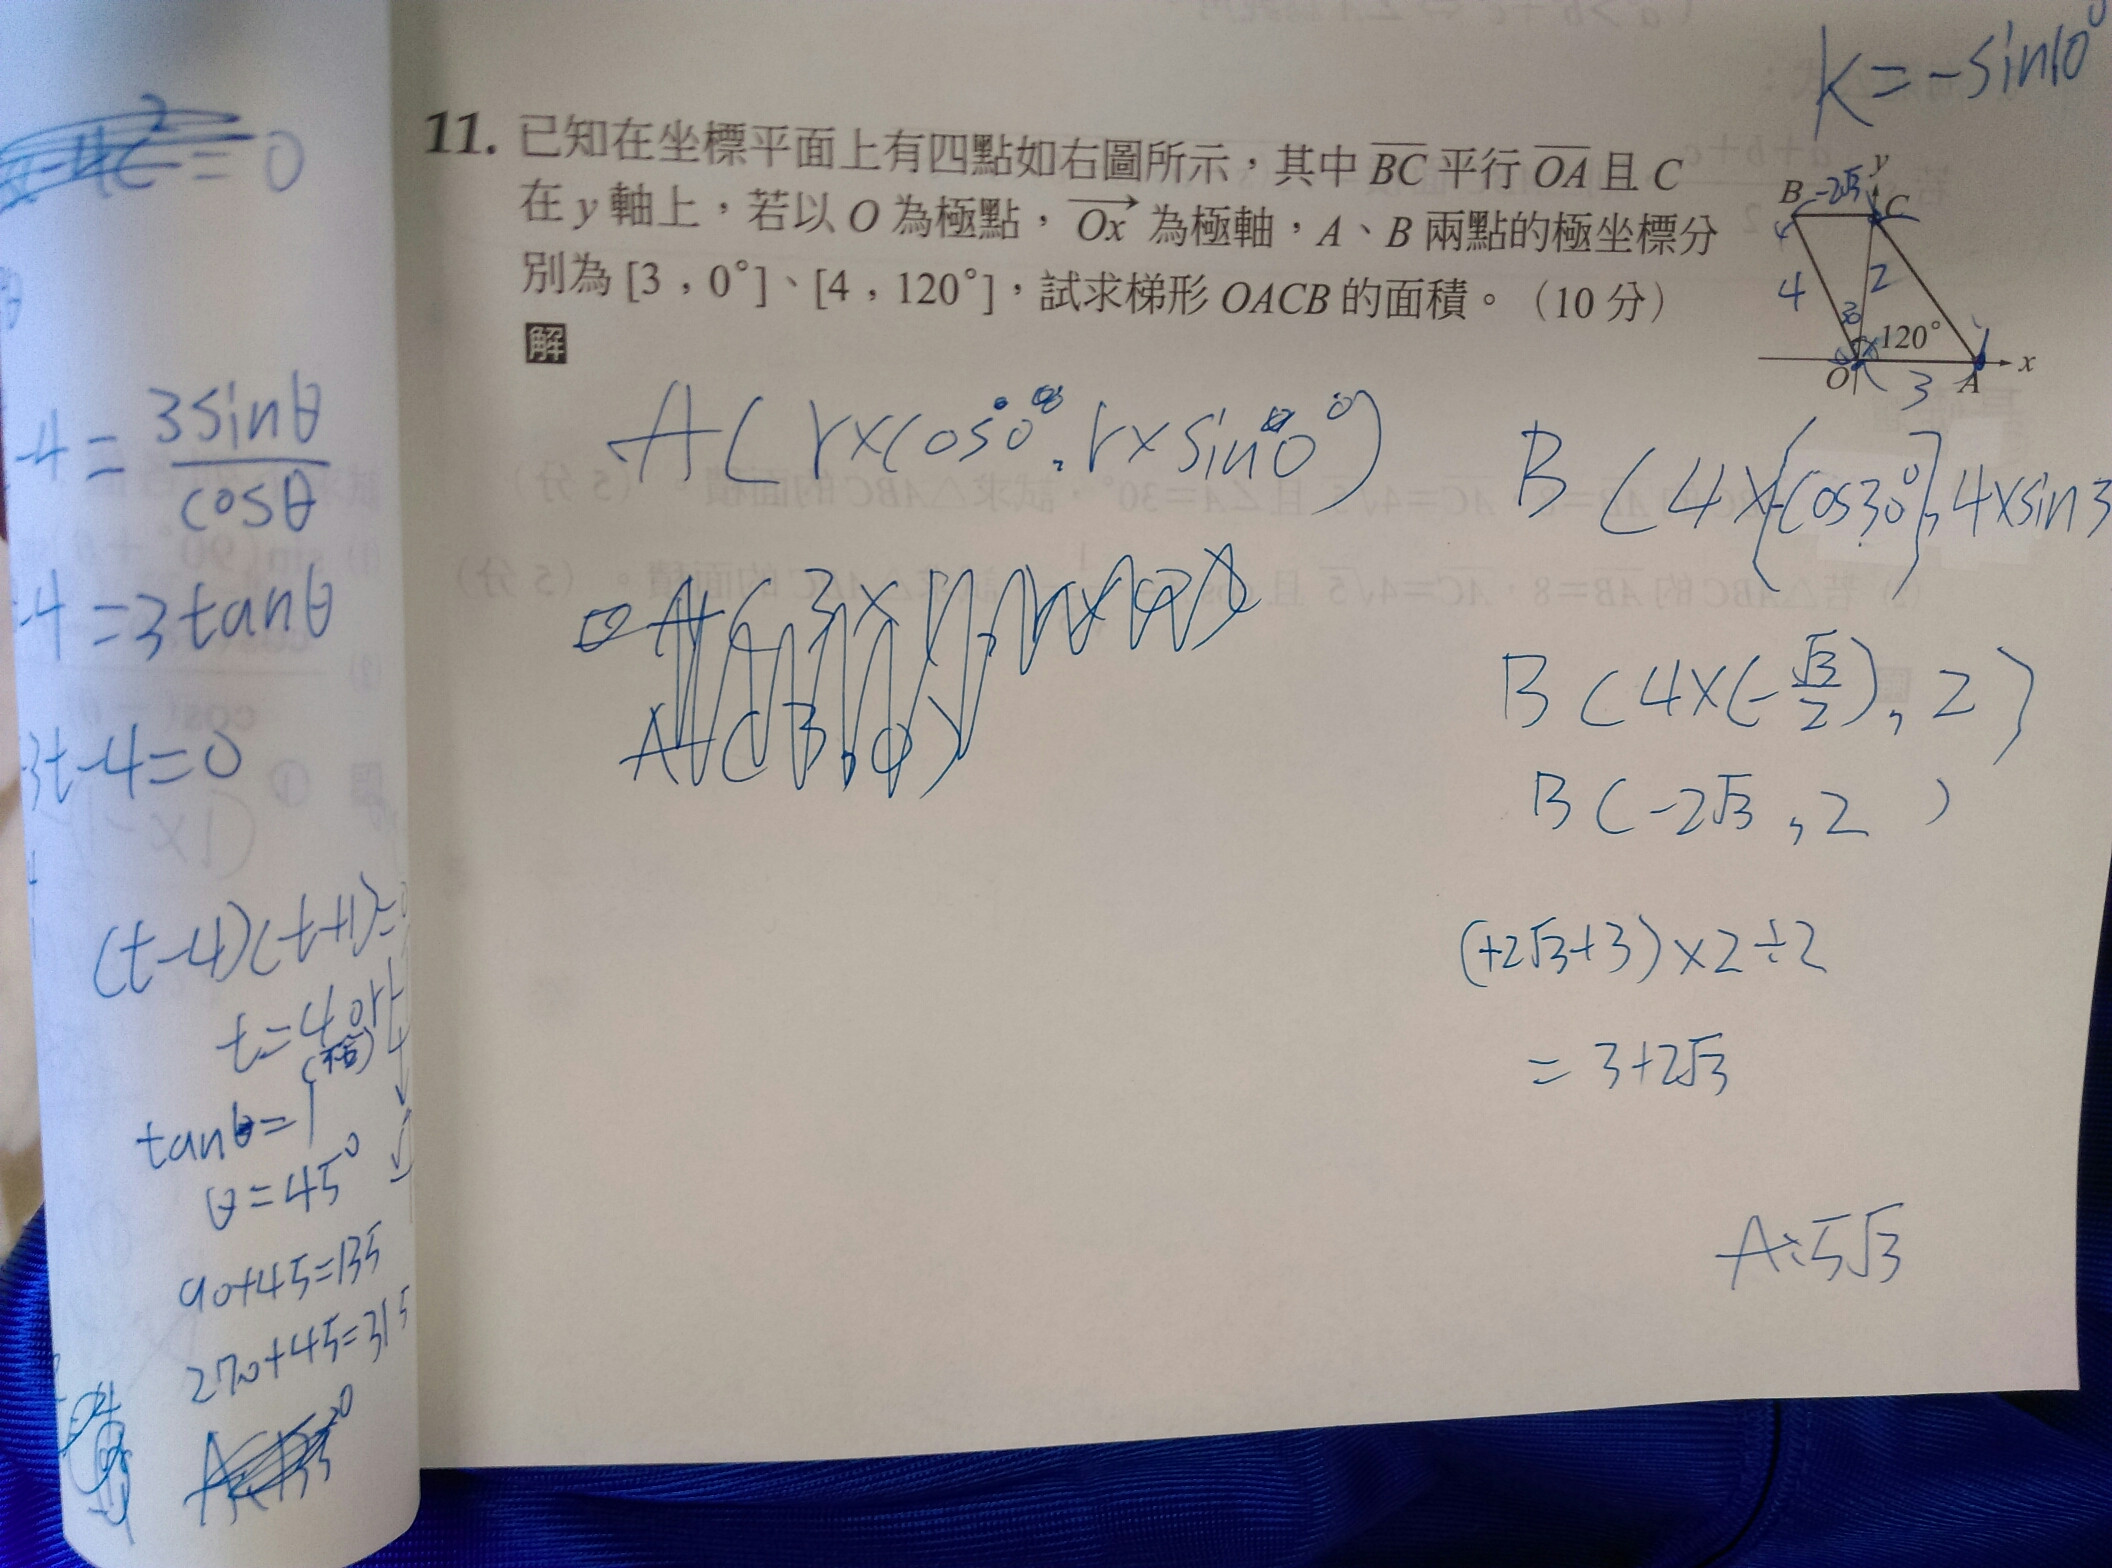 K=-sin10°
11. 已知在坐標平面上有四點如右圖所示，其中 BC 平行 OA 且 C
在 y 軸上，若以 O 為極點，Ox 為極軸，A、B 兩點的極坐標分
別為 [3，0°]、[4，120°]，試求梯形 OACB 的面積。（10 分）
解
B -2√3 y C
4 2
30 120°
O 3 A x
A(r×cos0°, r×sin0°)
B(4×(cos30°), 4×sin3
B(4×(-√3/2), 2)
B(-2√3, 2)
(+2√3+3)×2÷2
=3+2√3
A:5√3
=0
-4=3sinθ/cosθ
-4=3tanθ
3t-4=0
(t-4)(t+1)=0
t=4 or
(不合)
tanθ=1
θ=45°
90+45=135
270+45=315